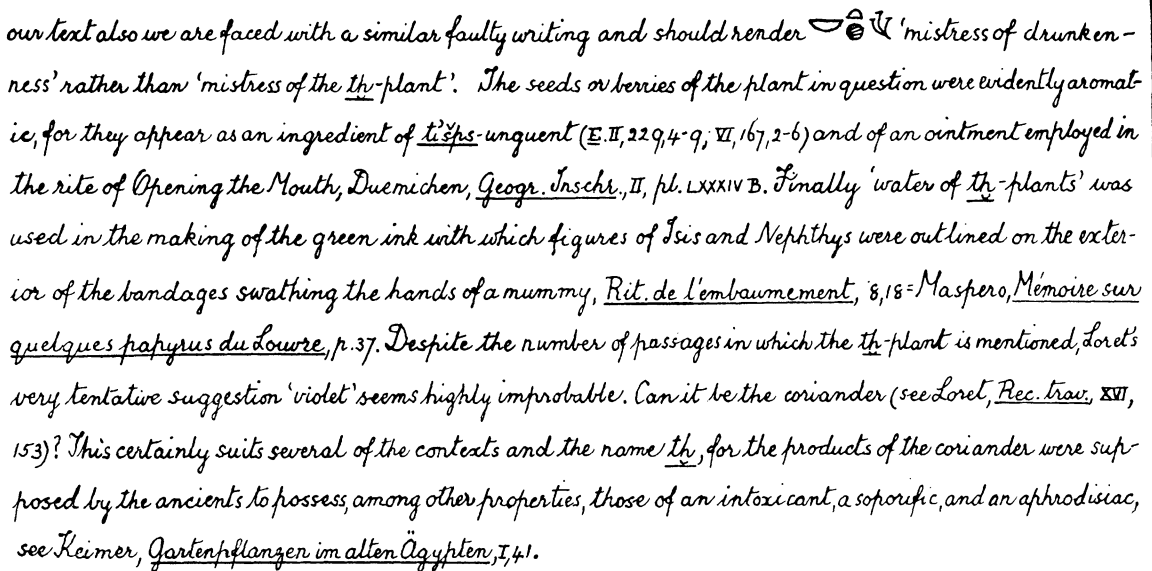 our text also we are faced with a similar faulty writing and should render 'mistress of drunken-
ness' rather than 'mistress of the tḫ-plant'. The seeds or berries of the plant in question were evidently aromat-
ic, for they appear as an ingredient of tỉšps-unguent (E. II, 229,4-9; VI, 167,2-6) and of an ointment employed in
the rite of Opening the Mouth, Duemichen, Geogr. Inschr., II, pl. LXXXIV B. Finally 'water of tḫ-plants' was
used in the making of the green ink with which figures of Isis and Nephthys were outlined on the exter-
ior of the bandages swathing the hands of a mummy, Rit. de l'embaumement, 8,18 = Maspero, Mémoire sur
quelques papyrus du Louvre, p. 37. Despite the number of passages in which the tḫ-plant is mentioned, Loret's
very tentative suggestion 'violet' seems highly improbable. Can it be the coriander (see Loret, Rec. trav., XVI,
153)? This certainly suits several of the contexts and the name tḫ, for the products of the coriander were sup-
posed by the ancients to possess, among other properties, those of an intoxicant, a soporific, and an aphrodisiac,
see Keimer, Gartenpflanzen im alten Ägypten, I, 41.